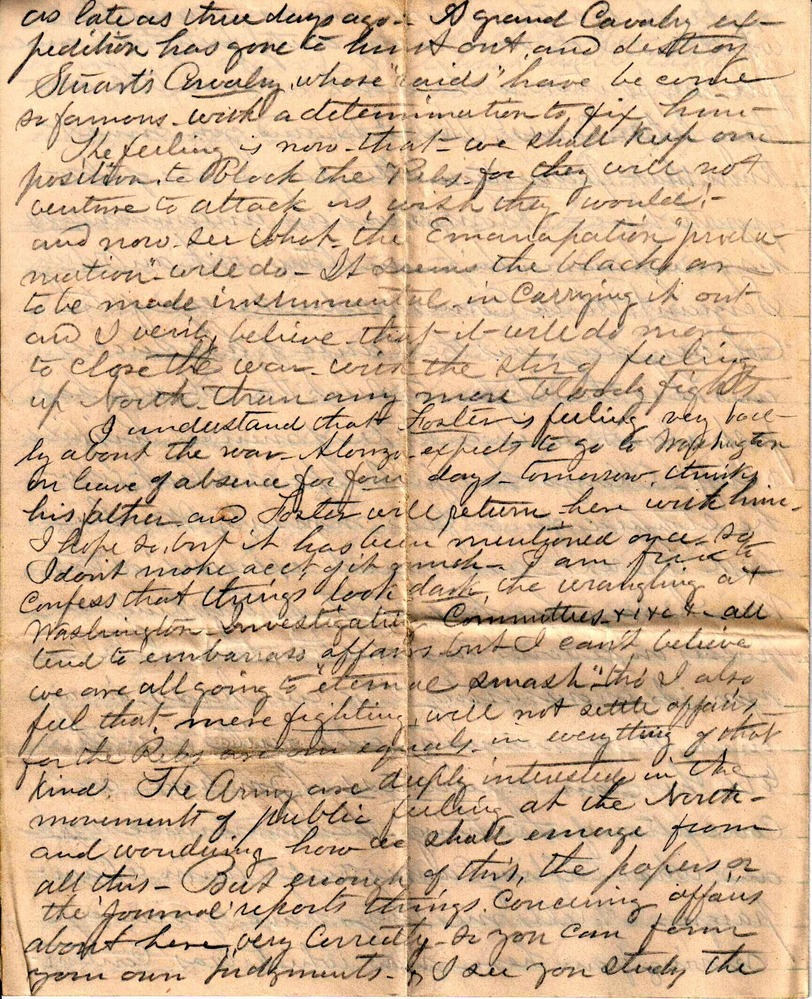 as late as three days ago - A grand Cavalry ex-
pedition has gone to hunt out, and destroy
Stuart's Cavalry, whose "raids" have become
so famous - with a determination to fix him -
The feeling is now - that - we shall keep our
position, to Block the Rebs, for they will not
venture to attack us, wish they would! -
and now - see what the "Emanapation" procla-
mation" will do - It seems the blacks are
to be made instrumental in carrying it out
and I verily believe that - it - will do more
to close the war - with the feeling
up North - than any more bloody fights
I understand that Foster is feeling very bad-
ly about the war - Alonzo expects to go to Washington
on leave of absence for four days - tomorrow, thinks
his father and Foster will return here with him -
I hope so, but it has been mentioned once - so
I don't make acct of it much - I am free to
confess that things look dark, the wrangling at
Washington - Investigating Committees - &c &c &c all
tend to embarrass affairs but I can't believe
we are all going to "eternal smash" - tho' I also
feel that, mere fighting, will not settle affairs -
for the Rebs are our equals - in everything of that
kind. The Army are deeply interested in the
movements of public feeling at the North -
and wondering how we shall emerge from
all this - But enough of this, the papers or
the 'Journal' reports things concerning affairs
about here, very correctly - so you can form
your own judgments - I see you study the